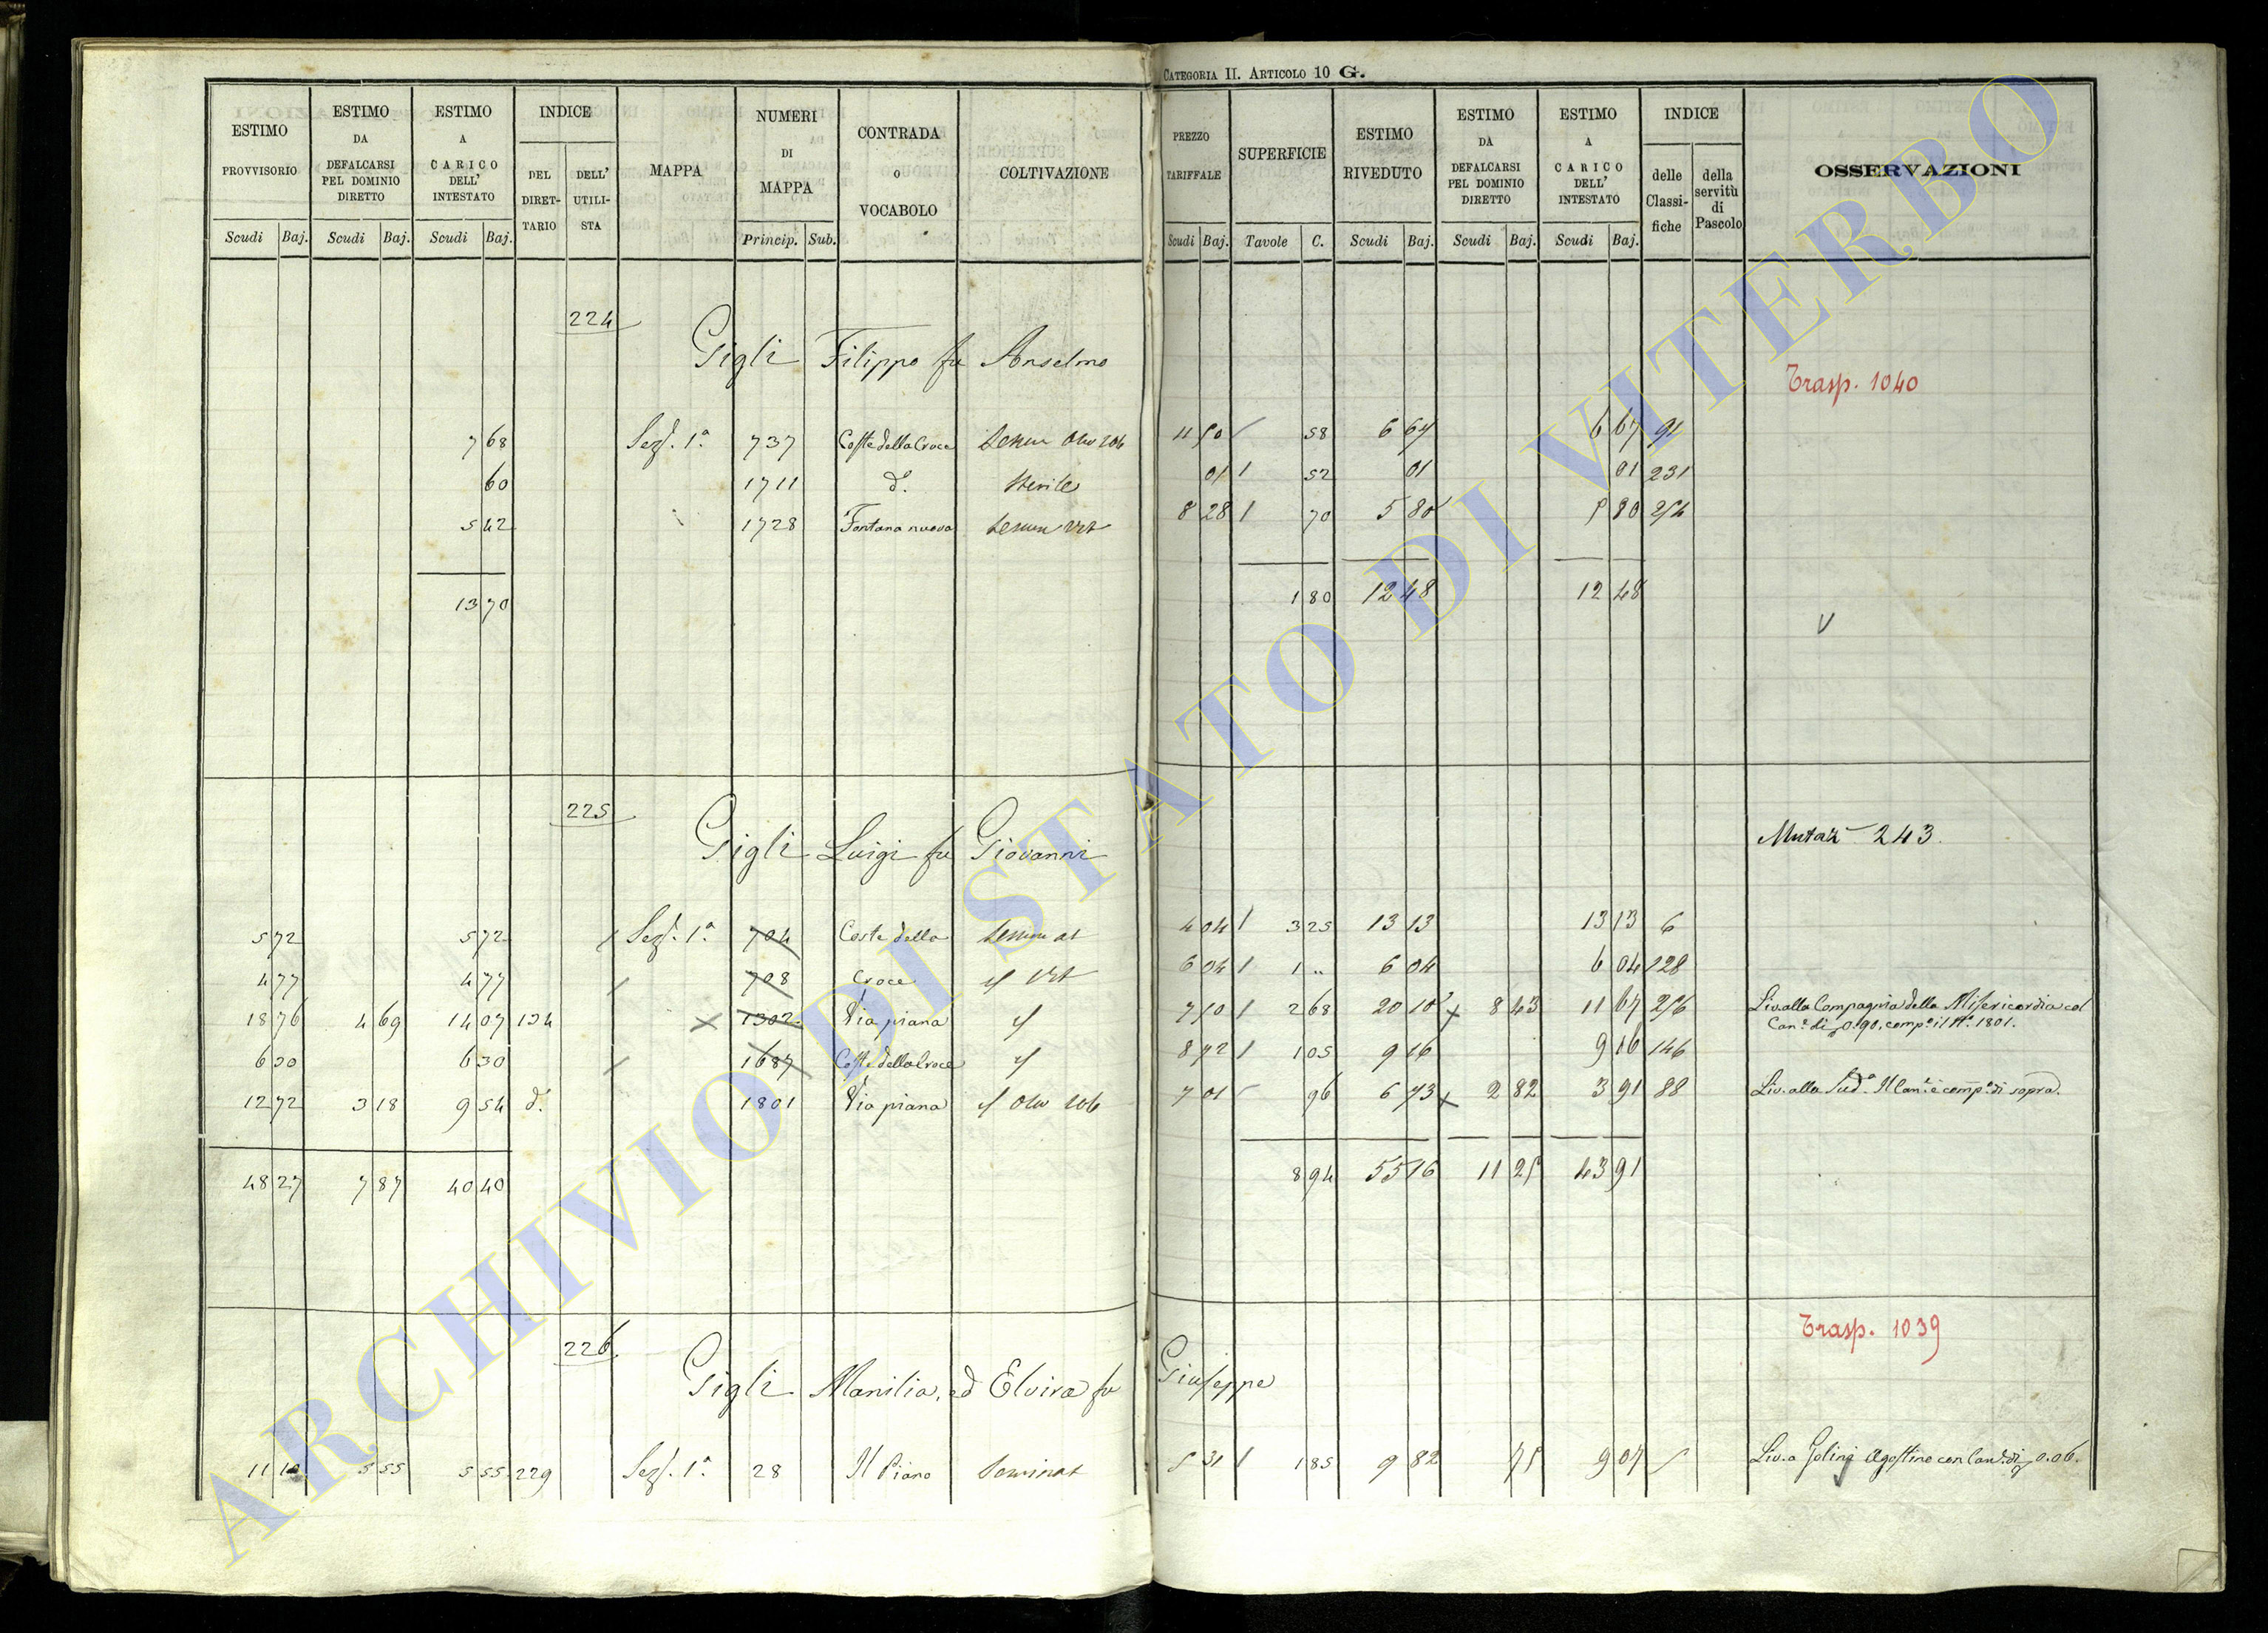 CATEGORIA II. ARTICOLO 10 G.
ESTIMO PROVVISORIO
ESTIMO DA DEFALCARSI PEL DOMINIO DIRETTO
ESTIMO A CARICO DELL' INTESTATO
INDICE
DEL DIRET-TARIO
DELL' UTILI-STA
MAPPA
NUMERI DI MAPPA
CONTRADA O VOCABOLO
COLTIVAZIONE
PREZZO TARIFFALE
SUPERFICIE
ESTIMO RIVEDUTO
ESTIMO DA DEFALCARSI PEL DOMINIO DIRETTO
ESTIMO A CARICO DELL' INTESTATO
INDICE
delle Classi-fiche
della servitù di Pascolo
OSSERVAZIONI
Scudi Baj. Scudi Baj. Scudi Baj. Princip. Sub. Scudi Baj. Tavole C. Scudi Baj. Scudi Baj. Scudi Baj.
224
Gigli Filippo fu Anselmo
Trasp. 1040
7 68 Sez. 1ª 737 Coste della Croce 58 6 67 6 67 91
60 1711 dº. Sterile 01 1 52 01 01 231
5 42 1728 Fontana nuova 8 28 1 70 5 80 5 80 254
13 70 1 80 12 48 12 48
V
225
Gigli Luigi fu Giovanni
Mutaz 243.
5 72 5 72 Sez. 1ª 704 Coste della 4 04 1 3 25 13 13 13 13 6
4 77 4 77 708 Croce 6 04 1 1 „ 6 04 6 04 128
18 76 4 69 14 07 134 1302 Via piana 7 50 1 2 68 20 10 8 43 11 67 256 Liv. alla Compagnia della Misericordia col
Can.e di 0.90, comp.º il Nº. 1801.
6 30 6 30 1687 Coste della Croce 8 72 1 1 05 9 16 9 16 146
12 72 3 18 9 54 dº. 1801 Via piana 7 01 96 6 73 2 82 3 91 88 Liv. alla Sudª. Il Can.e è comp.º di sopra.
48 27 7 87 40 40 8 94 55 16 11 25 43 91
226
Trasp. 1039
Gigli Manilia, ed Elvira fu Giuseppe
11 10 5 55 5 55 229 Sez. 1ª 28 Il Piano Seminat 5 31 1 1 85 9 82 75 9 07 5 Liv. a Golini Agostino con Can.e di 0.06.
ARCHIVIO DI STATO DI VITERBO